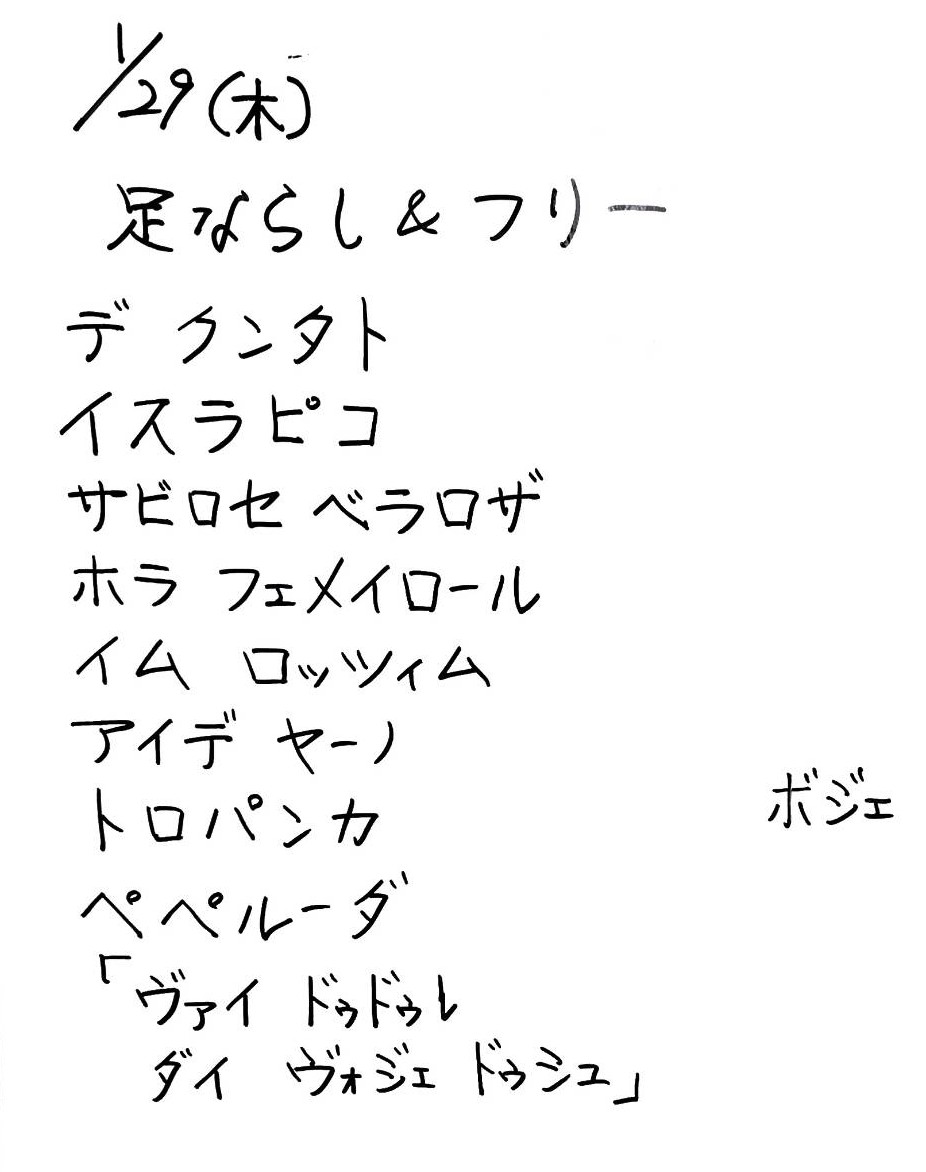 1/29(木)
足ならし & フリー
デ クンタト
イスラピコ
サビロセ ベラロザ
ホラ フェメイロール
イム ロッツィム
アイデ ヤーノ
トロパンカ
ボジェ
ペペルーダ
「ヴァイ ドゥドゥレ
ダイ ヴォジェ ドゥシュ」